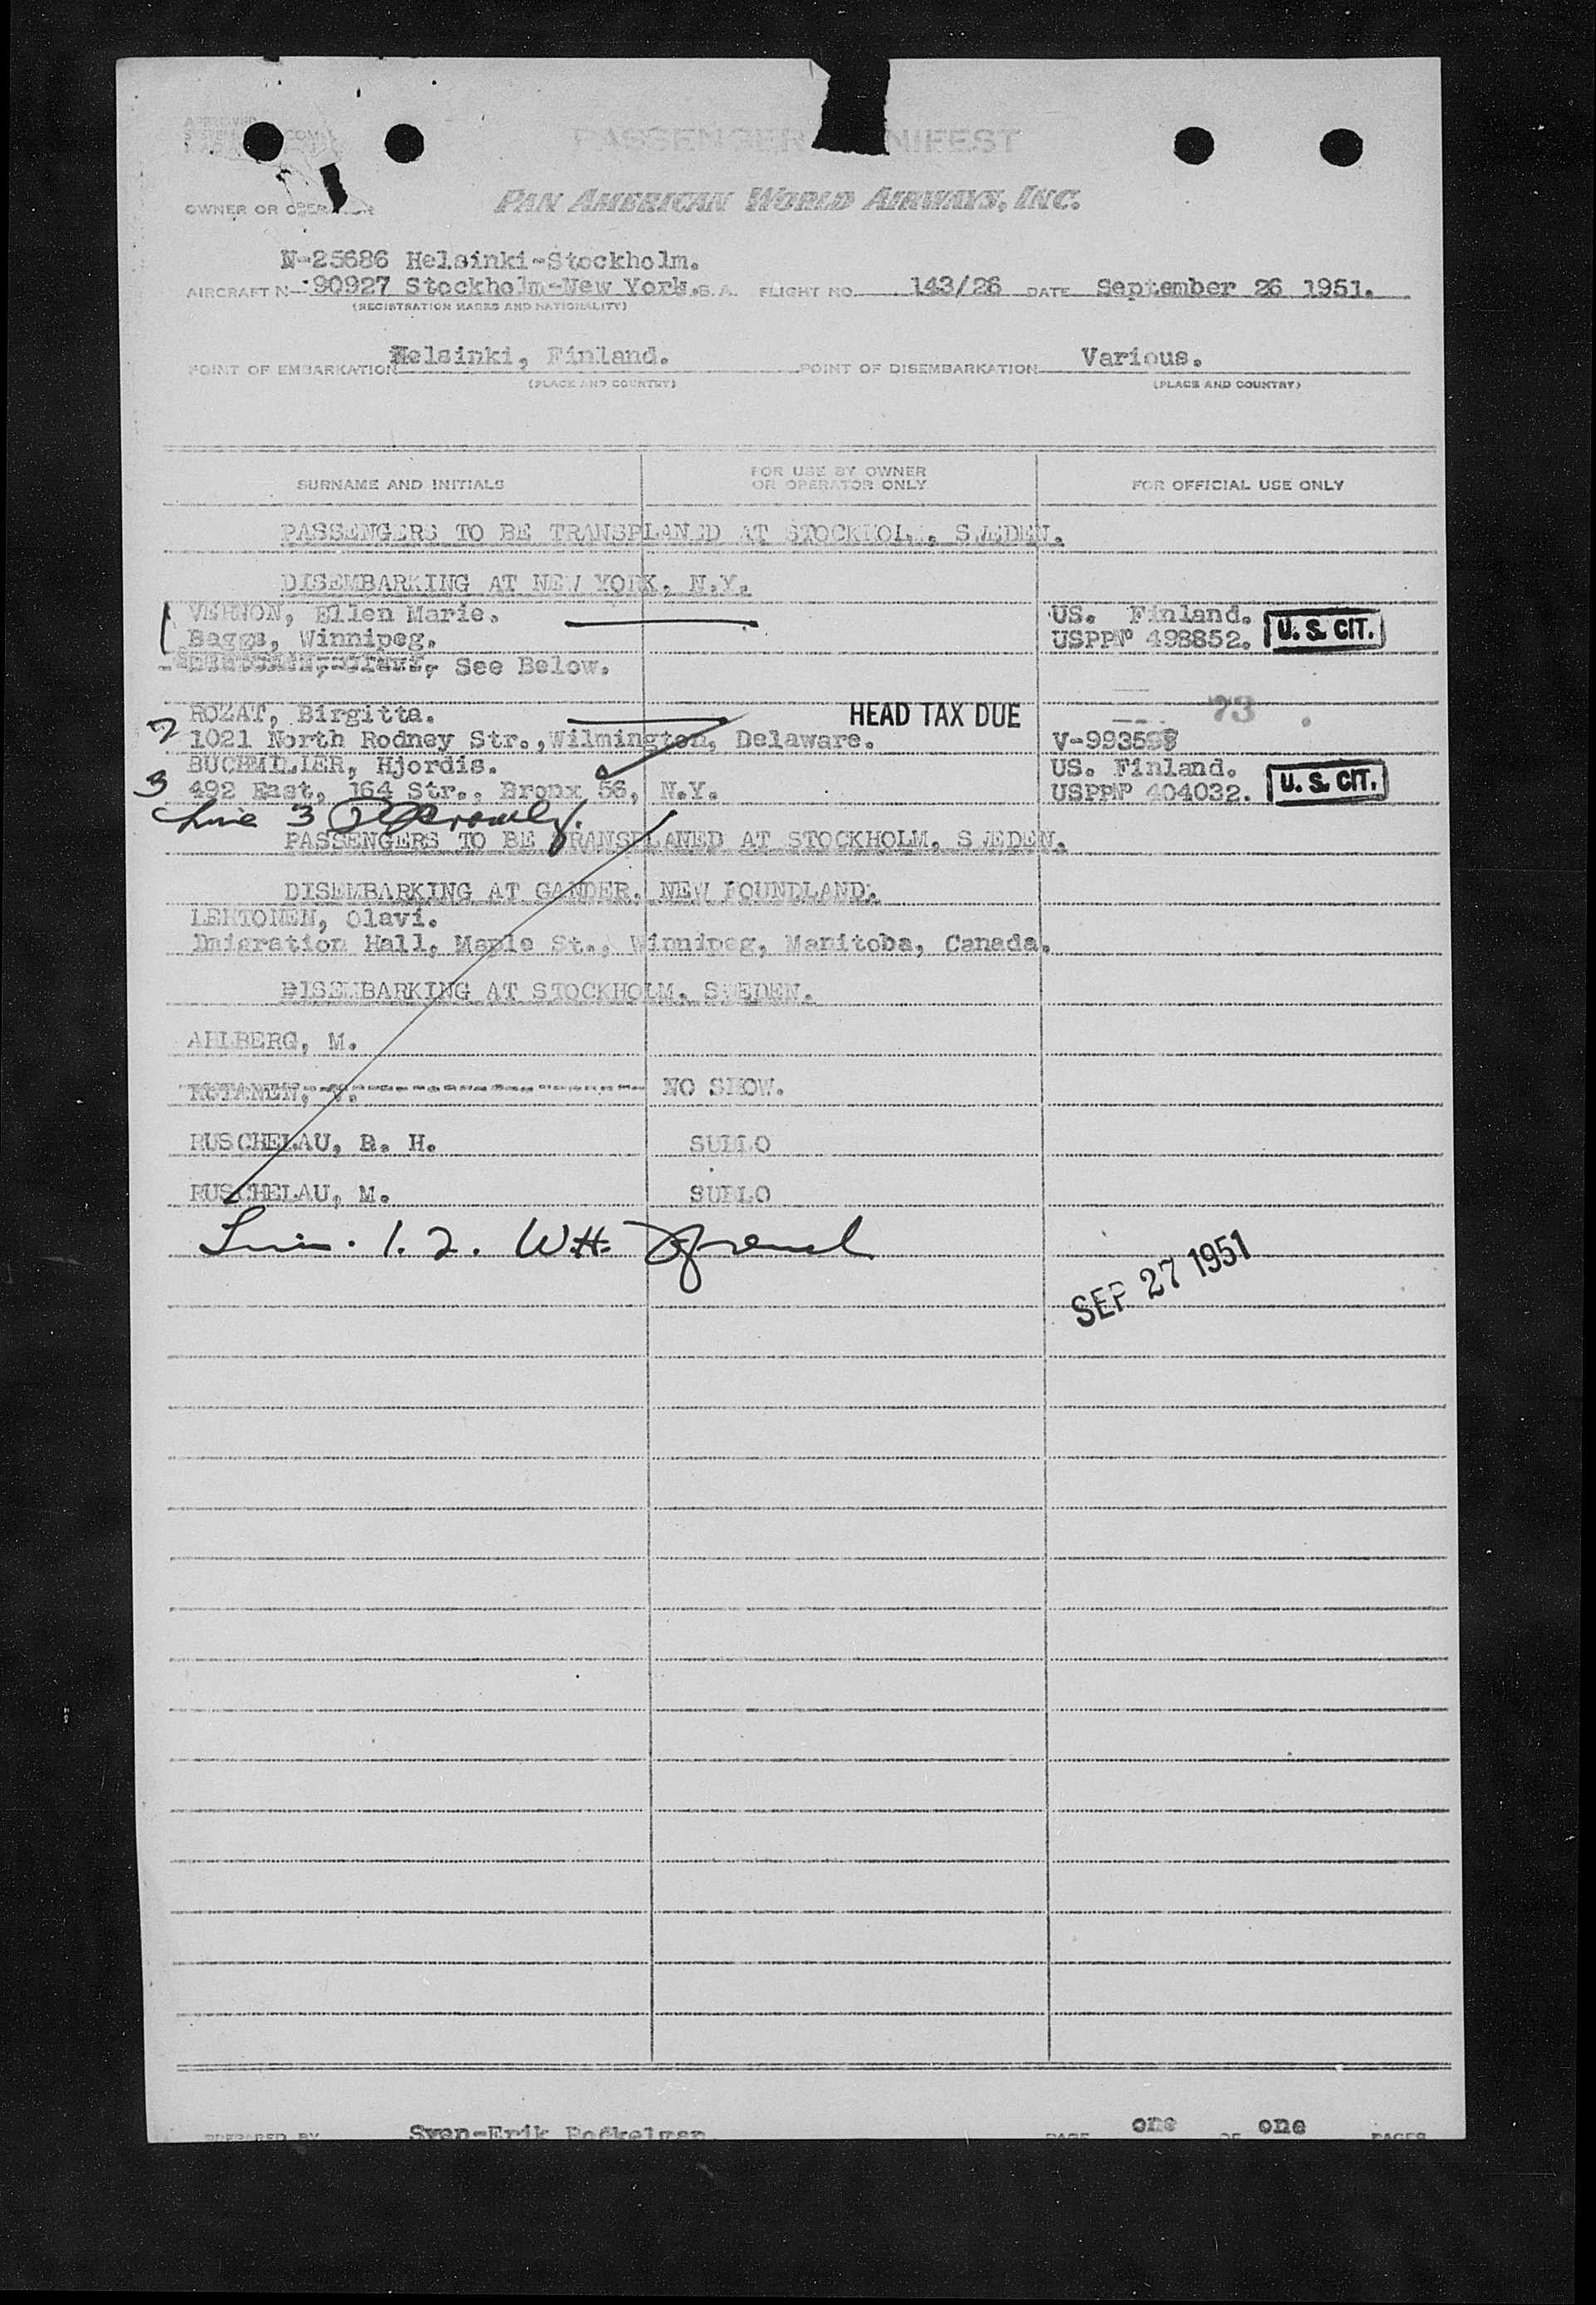 APPROVED
PASSENGER MANIFEST
OWNER OR OPERATOR PAN AMERICAN WORLD AIRWAYS, INC.
N-25686 Helsinki-Stockholm.
AIRCRAFT N- 90927 Stockholm-New York. S. A. FLIGHT NO. 143/26 DATE September 26 1951.
(REGISTRATION MARKS AND NATIONALITY)
POINT OF EMBARKATION Helsinki, Finland. POINT OF DISEMBARKATION Various.
(PLACE AND COUNTRY) (PLACE AND COUNTRY)
SURNAME AND INITIALS FOR USE BY OWNER OR OPERATOR ONLY FOR OFFICIAL USE ONLY
PASSENGERS TO BE TRANSPLANED AT STOCKHOLM, SWEDEN.
DISEMBARKING AT NEW YORK, N.Y.
1 VERNON, Ellen Marie. US. Finland.
Baggs, Winnipeg. USPPNo 498852. U. S. CIT.
See Below.
ROZAT, Birgitta. HEAD TAX DUE 73
2 1021 North Rodney Str., Wilmington, Delaware. V-993598
BUCHMILIER, Hjordis. US. Finland.
3 492 East, 164 Str., Bronx 56, N.Y. USPPNo 404032. U. S. CIT.
Line 3
PASSENGERS TO BE TRANSPLANED AT STOCKHOLM, SWEDEN.
DISEMBARKING AT GANDER, NEW FOUNDLAND.
LEHTONEN, Olavi.
Imigration Hall, Maple St., Winnipeg, Manitoba, Canada.
DISEMBARKING AT STOCKHOLM, SWEDEN.
AHLBERG, M.
ROTANEN, V. NO SHOW.
RUSCHELAU, R. H. SUBLO
RUSCHELAU, M. SUBLO
1. 2. W.H.
SEP 27 1951
PREPARED BY Sven-Erik PAGE one OF one PAGES